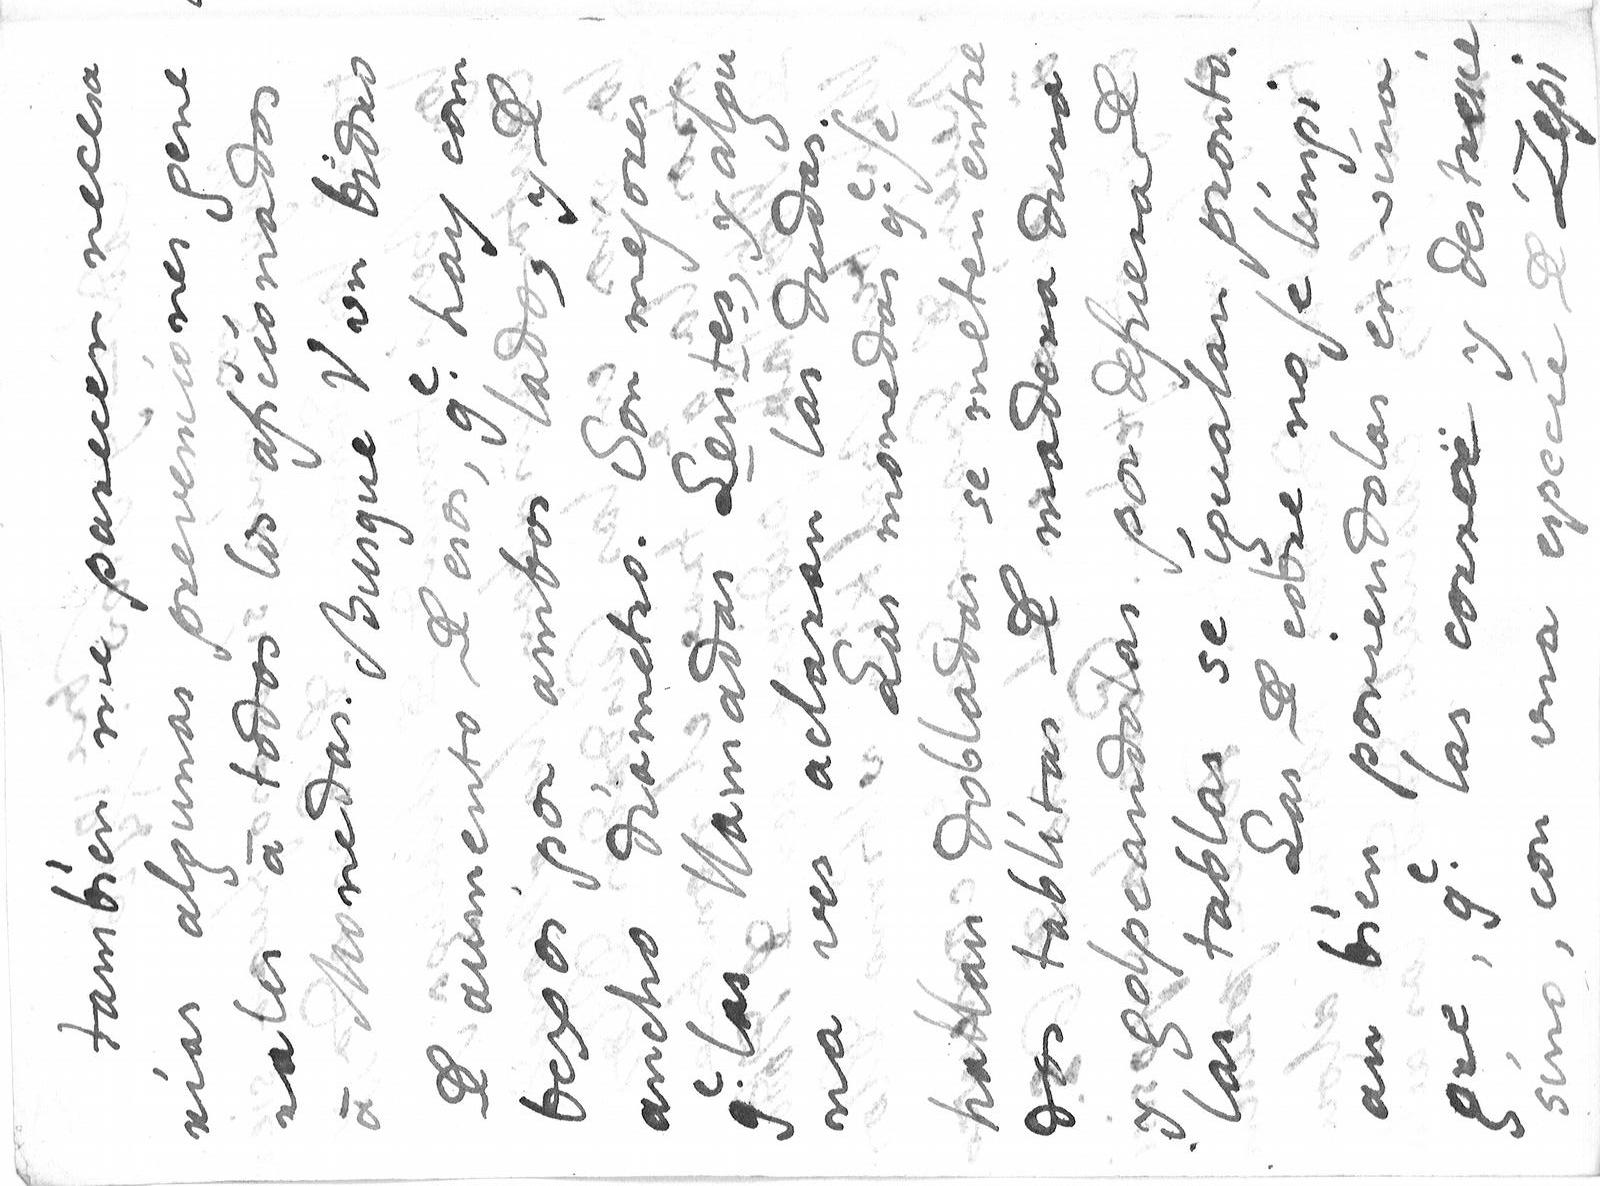 tambíen me parecen necesa
rías algunas prevencíones gene
rales ā todos los afícíonados
ā Monedas. Busque V un bídrío
D aumento D esos, q.e hay com
bexos por ambos lados, y D
ancho díametro. Son mejores
q.e las llamadas Lentes, y algu
na ves aclaran las dudas.
Las monedas q.e se
hallan dobladas se meten entre
dos tablítas D madera dura
y golpeandolas por defuera D
las tablas se ígualan pronto.
Las D cobre no se límpí
an bíen poníendolas en vína
gre, q.e las corroé y destruíe
síno, con una especíe D Zepí